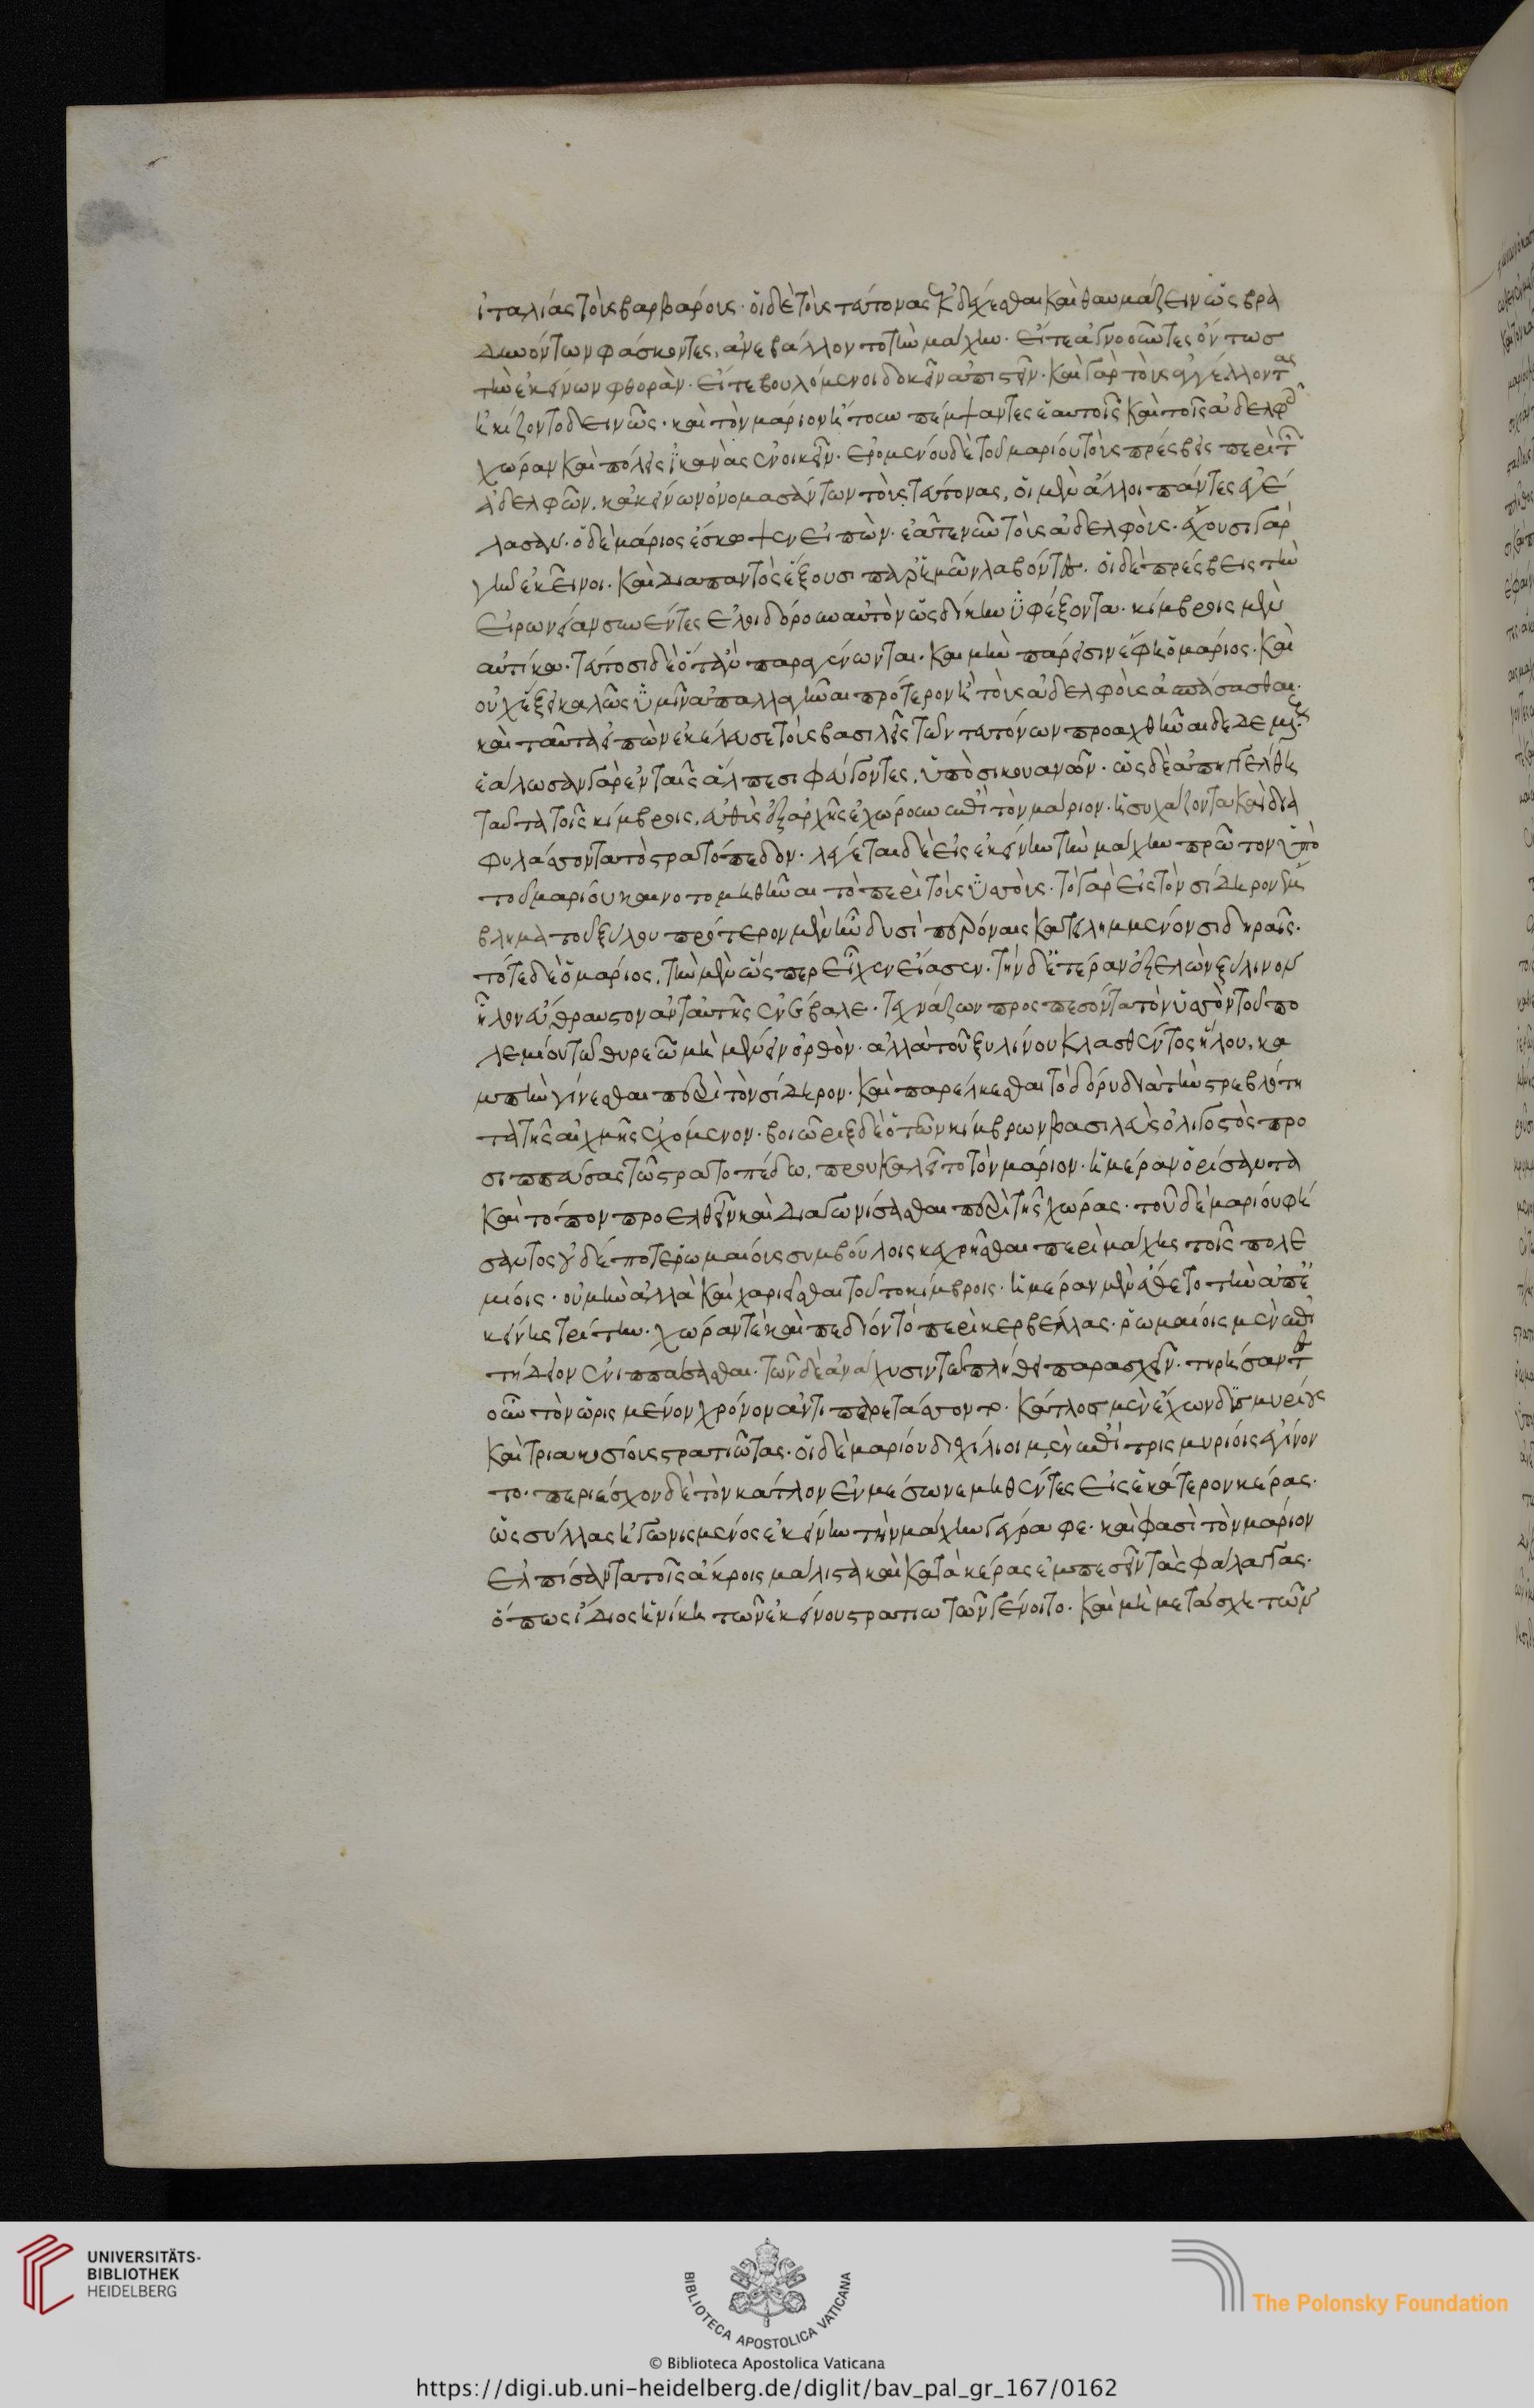 ἰταλίας τοὺς βαρβάρους· οἱ δὲ τοὺς τεύτονας ἐκδέχεσθαι καὶ θαυμάζειν ὡς βρα
δυνόντων φάσκοντες, ἀνεβάλλοντο τὴν μάχην· εἴτε ἀγνοοῦντες ὄντως
τὴν ἐκείνων φθορὰν· εἴτε βουλόμενοι δοκεῖν ἀπιστεῖν· καὶ γὰρ τοὺς ἀγγέλλοντας
ᾐκίζοντο δεινῶς· καὶ τὸν μάριον ᾔτουν πέμψαντες ἑαυτοῖς καὶ τοῖς ἀδελφοῖς
χώραν καὶ πόλεις ἱκανὰς ἐνοικεῖν· ἐρομένου δὲ τοῦ μαρίου τοὺς πρέσβεις περὶ τῶν
ἀδελφῶν, κἀκείνων ὀνομασάντων τοὺς τεύτονας, οἱ μὲν ἄλλοι πάντες ἐγέ
λασαν· ὁ δὲ μάριος ἔσκωψεν εἰπὼν· ἐᾶτε νῦν τοὺς ἀδελφοὺς· ἔχουσι γὰρ
γῆν ἐκεῖνοι· καὶ διαπαντὸς ἕξουσι παρ ἡμῶν λαβόντες· οἱ δὲ πρέσβεις τὴν
εἰρωνείαν συνέντες ἐλοιδόρουν αὐτὸν ὡς δίκην ὑφέξοντα· κίμβροις μὲν
αὐτίκα· τεύτοσι δὲ ὅταν παραγένωνται· καὶ μὴν πάρεισιν ἔφη ὁ μάριος· καὶ
οὐχ ἕξει καλῶς ὑμῖν ἀπαλλαγῆναι πρότερον ἢ τοὺς ἀδελφοὺς ἀσπάσασθαι·
καὶ ταῦτα εἰπὼν ἐκέλευσε τοὺς βασιλεῖς τῶν τευτόνων προαχθῆναι δεδεμένους·
ἑάλωσαν γὰρ ἐν ταῖς ἄλπεσι φεύγοντες, ὑπὸ σικουανῶν· ὡς δὲ ἀπηγγέλθη
ταῦτα τοῖς κίμβροις, αὖθις ἐξαρχῆς ἐχώρουν ἐπὶ τὸν μάριον· ἡσυχάζοντα καὶ δια
φυλάττοντα τὸ στρατόπεδον· λέγεται δὲ εἰς ἐκείνην τὴν μάχην πρῶτον ὑπὸ
τοῦ μαρίου καινοτομηθῆναι τὸ περὶ τοὺς ὑσσοὺς· τὸ γὰρ εἰς τὸν σίδηρον ἔμ
βλημα τοῦ ξύλου πρότερον μὲν ἦν δυσὶ περόναις κατειλημμένον σιδηραῖς·
τότε δὲ ὁ μάριος, τὴν μὲν ὥσπερ εἶχεν εἴασεν· τὴν δ' ἑτέραν ἐξελὼν ξύλινον
ἧλον εὔθραυστον ἀντ' αὐτῆς ἐνέβαλε· τεχνάζων προσπεσόντα τὸν ὑσσὸν τοῦ πο
λεμίου τῶ θυρεῶ μὴ μένειν ὀρθὸν· ἀλλὰ τοῦ ξυλίνου κλασθέντος ἥλου, κα
μπὴν γίνεσθαι περὶ τὸν σίδηρον· καὶ παρέλκεσθαι τὸ δόρυ διὰ τὴν στρεβλότη
τα τῆς αἰχμῆς ἐχόμενον· βοιῶριξ δὲ ὁ τῶν κίμβρων βασιλεὺς ὀλιγοστὸς προ
σιππεύσας τῶ στρατοπέδω, προυκαλεῖτο τὸν μάριον· ἡμέραν ὁρίσαντα
καὶ τόπον προελθεῖν καὶ διαγωνίσασθαι περὶ τῆς χώρας· τοῦ δὲ μαρίου φή
σαντος οὐδέποτε ῥωμαίους συμβούλοις κεχρῆσθαι περὶ μάχης τοῖς πολε
μίοις· οὐ μὴν ἀλλὰ καὶ χαριεῖσθαι τοῦτο κίμβροις· ἡμέραν μὲν ἔθετο τὴν ἀπ' ἐ
κείνης τρίτην· χώραν τὲ καὶ πεδίον τὸ περὶ κερβέλλας· ῥωμαίοις μὲν ἐπι
τήδειον ἐνιππεύσασθαι· τῶν δὲ ἀνάχυσιν τῶ πλήθει παρασχεῖν· τηρήσαντες
οὖν τὸν ὡρισμένον χρόνον ἀντιπαρετάσσοντο· κάτλος μὲν ἔχων δισμυρίους
καὶ τριακοσίους στρατιώτας· οἱ δὲ μαρίου δισχίλιοι μὲν ἐπὶ τρισμυρίοις ἐγίνον
το· περιέσχον δὲ τὸν κάτλον ἐν μέσω νεμηθέντες εἰς ἑκάτερον κέρας·
ὡς σύλλας ἠγωνισμένος ἐκείνην τὴν μάχην γέγραφε· καὶ φασὶ τὸν μάριον
ἐλπίσαντα τοῖς ἄκροις μάλιστα καὶ κατὰ κέρας ἐμπεσεῖν τὰς φάλαγγας·
ὅπως ἴδιος ἡ νίκη τῶν ἐκείνου στρατιωτῶν γένοιτο· καὶ μὴ μετάσχη τῶν
UNIVERSITÄTS-
BIBLIOTHEK
HEIDELBERG
BIBLIOTECA APOSTOLICA VATICANA
The Polonsky Foundation
© Biblioteca Apostolica Vaticana
https://digi.ub.uni-heidelberg.de/diglit/bav_pal_gr_167/0162